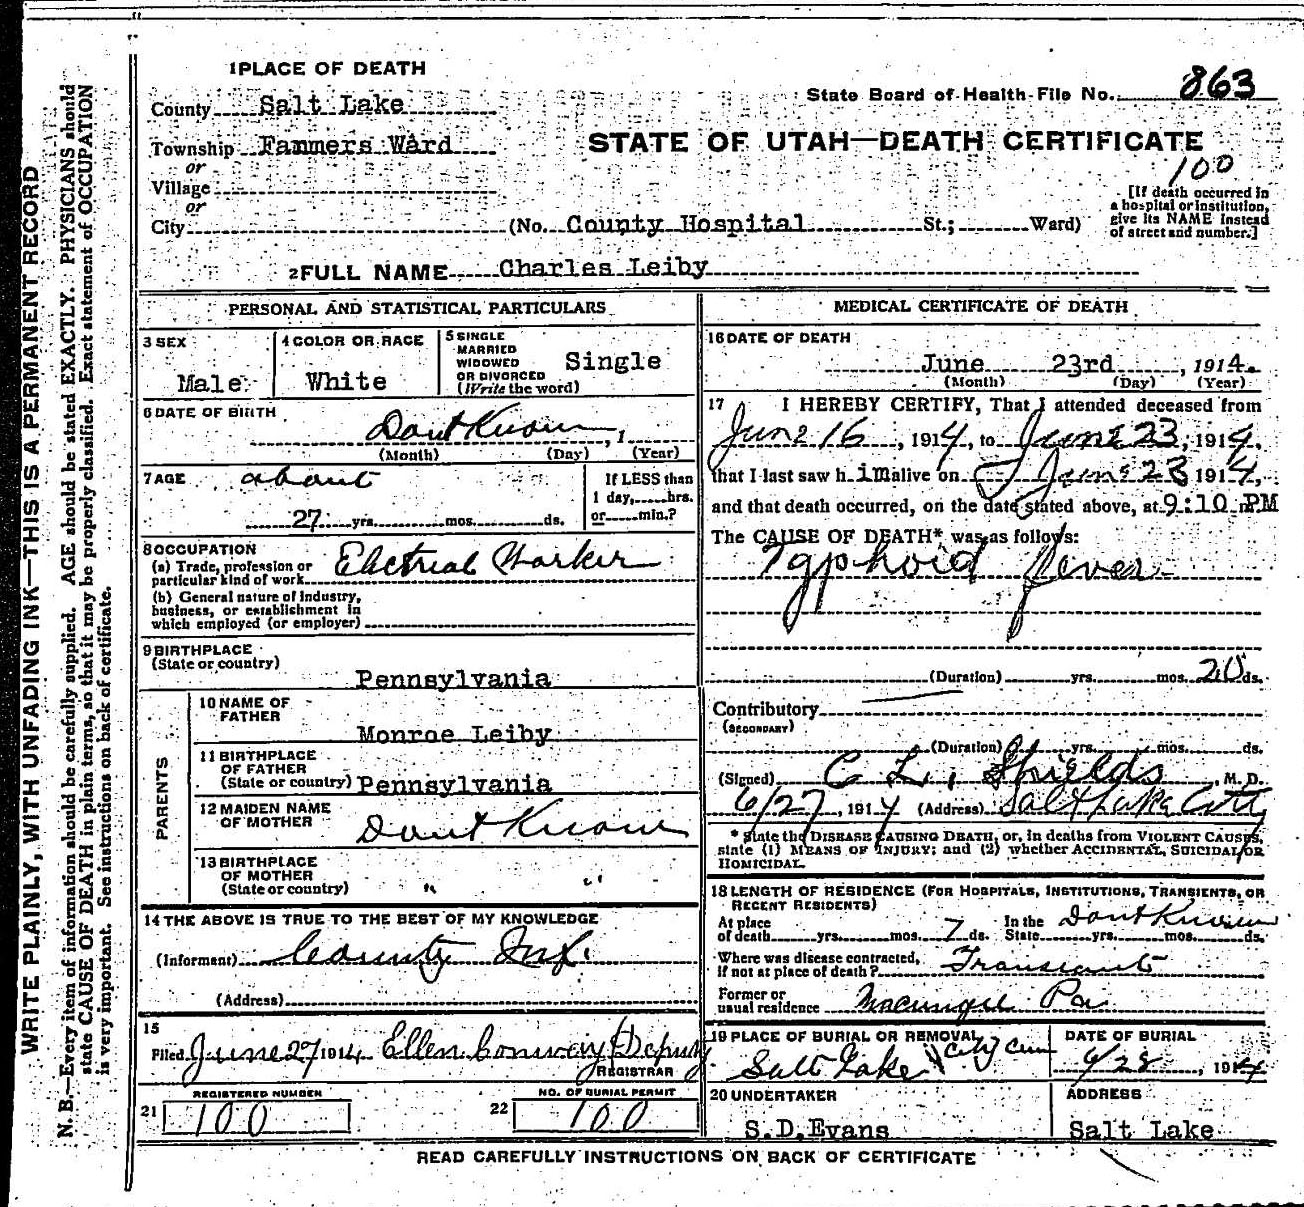 1 PLACE OF DEATH
County Salt Lake
State Board of Health-File No. 863
Township Fammers Ward
STATE OF UTAH—DEATH CERTIFICATE
100
or
Village
or
City (No. County Hospital St.; Ward)
[If death occurred in a hospital or institution, give its NAME instead of street and number.]
2 FULL NAME Charles Leiby
PERSONAL AND STATISTICAL PARTICULARS
3 SEX
Male
4 COLOR OR RACE
White
5 SINGLE
MARRIED
WIDOWED
OR DIVORCED
(Write the word)
Single
6 DATE OF BIRTH
Dont Know, 1
(Month) (Day) (Year)
7 AGE about
27 yrs. mos. ds.
If LESS than
1 day, hrs.
or min.?
8 OCCUPATION
(a) Trade, profession or
particular kind of work Electrical Worker
(b) General nature of industry,
business, or establishment in
which employed (or employer)
9 BIRTHPLACE
(State or country)
Pennsylvania
PARENTS
10 NAME OF
FATHER
Monroe Leiby
11 BIRTHPLACE
OF FATHER
(State or country) Pennsylvania
12 MAIDEN NAME
OF MOTHER
Dont Know
13 BIRTHPLACE
OF MOTHER
(State or country) " "
14 THE ABOVE IS TRUE TO THE BEST OF MY KNOWLEDGE
(Informant) County Inf.
(Address)
15
Filed June 27 1914 Ellen Conway Deputy
REGISTRAR
21 REGISTERED NUMBER
100
22 NO. OF BURIAL PERMIT
100
MEDICAL CERTIFICATE OF DEATH
16 DATE OF DEATH
June 23rd, 1914.
(Month) (Day) (Year)
17 I HEREBY CERTIFY, That I attended deceased from
June 16, 1914, to June 23, 1914,
that I last saw h im alive on June 23 1914,
and that death occurred, on the date stated above, at 9:10 m. PM
The CAUSE OF DEATH* was as follows:
Typhoid fever
(Duration) yrs. mos. 20 ds.
Contributory
(SECONDARY)
(Duration) yrs. mos. ds.
(Signed) C. L. Shields, M. D.
6/27, 1914 (Address) Salt Lake City
* State the DISEASE CAUSING DEATH, or, in deaths from VIOLENT CAUSES,
state (1) MEANS OF INJURY; and (2) whether ACCIDENTAL, SUICIDAL OR
HOMICIDAL.
18 LENGTH OF RESIDENCE (FOR HOSPITALS, INSTITUTIONS, TRANSIENTS, OR
RECENT RESIDENTS)
At place
of death yrs. mos. 7 ds.
In the
State yrs. mos. ds. Dont Know
Where was disease contracted,
if not at place of death? Transient
Former or
usual residence Macungie Pa
19 PLACE OF BURIAL OR REMOVAL
Salt Lake City Cem
DATE OF BURIAL
6/28, 1914
20 UNDERTAKER
S.D.Evans
ADDRESS
Salt Lake
READ CAREFULLY INSTRUCTIONS ON BACK OF CERTIFICATE
WRITE PLAINLY, WITH UNFADING INK—THIS IS A PERMANENT RECORD
N. B.—Every item of information should be carefully supplied. AGE should be stated EXACTLY. PHYSICIANS should
state CAUSE OF DEATH in plain terms, so that it may be properly classified. Exact statement of OCCUPATION
is very important. See instructions on back of certificate.